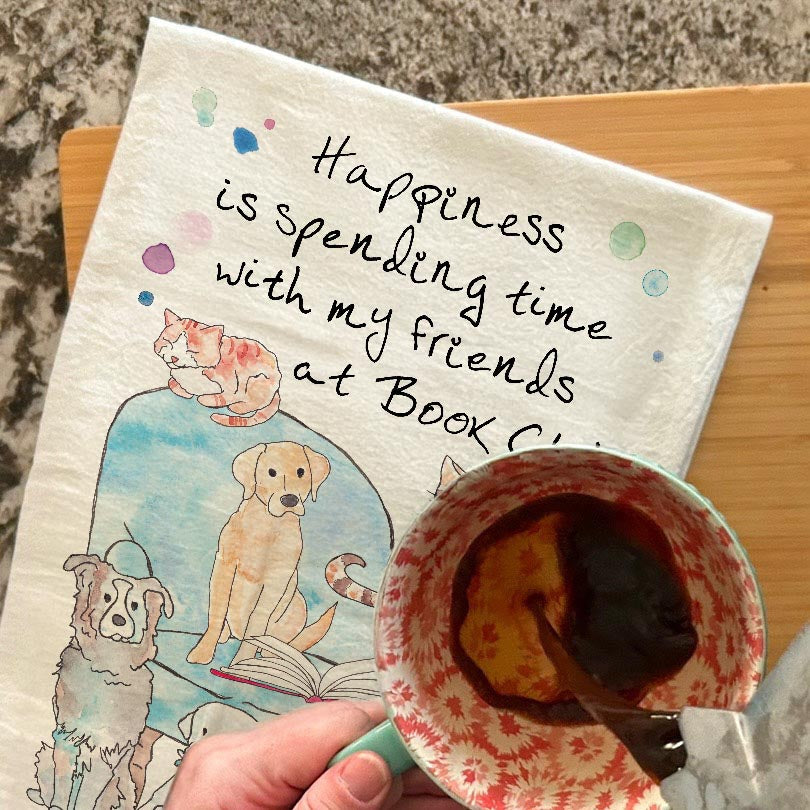 Happiness
is spending time
with my friends
at Book